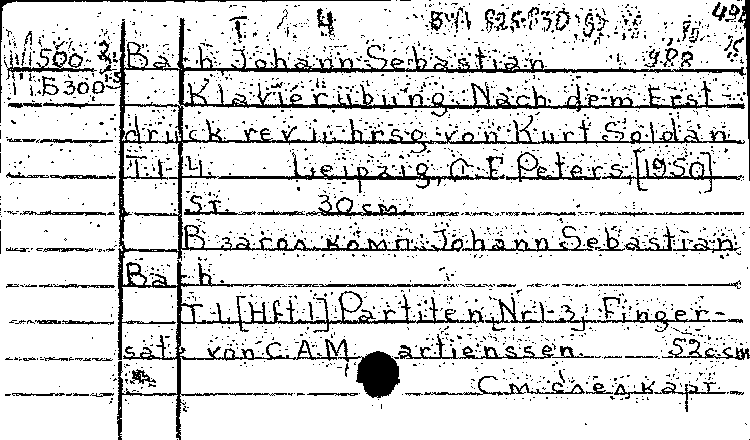 Т. 1-4
М 500 Bach Johann Sebastian
Б 300 Klavierübung. Nach dem Erst-
druck rev. u. hrsg. von Kurt Soldan
T. 1-4. Leipzig, C. F. Peters, [1950]
ST. 30 см.
В загол. комп.: Johann Sebastian
Bach.
T. 1. [Hft. 1] Partiten, Nr 1-3, Finger-
satz von C. A. Martienssen. 52 с см
См. след. карт.